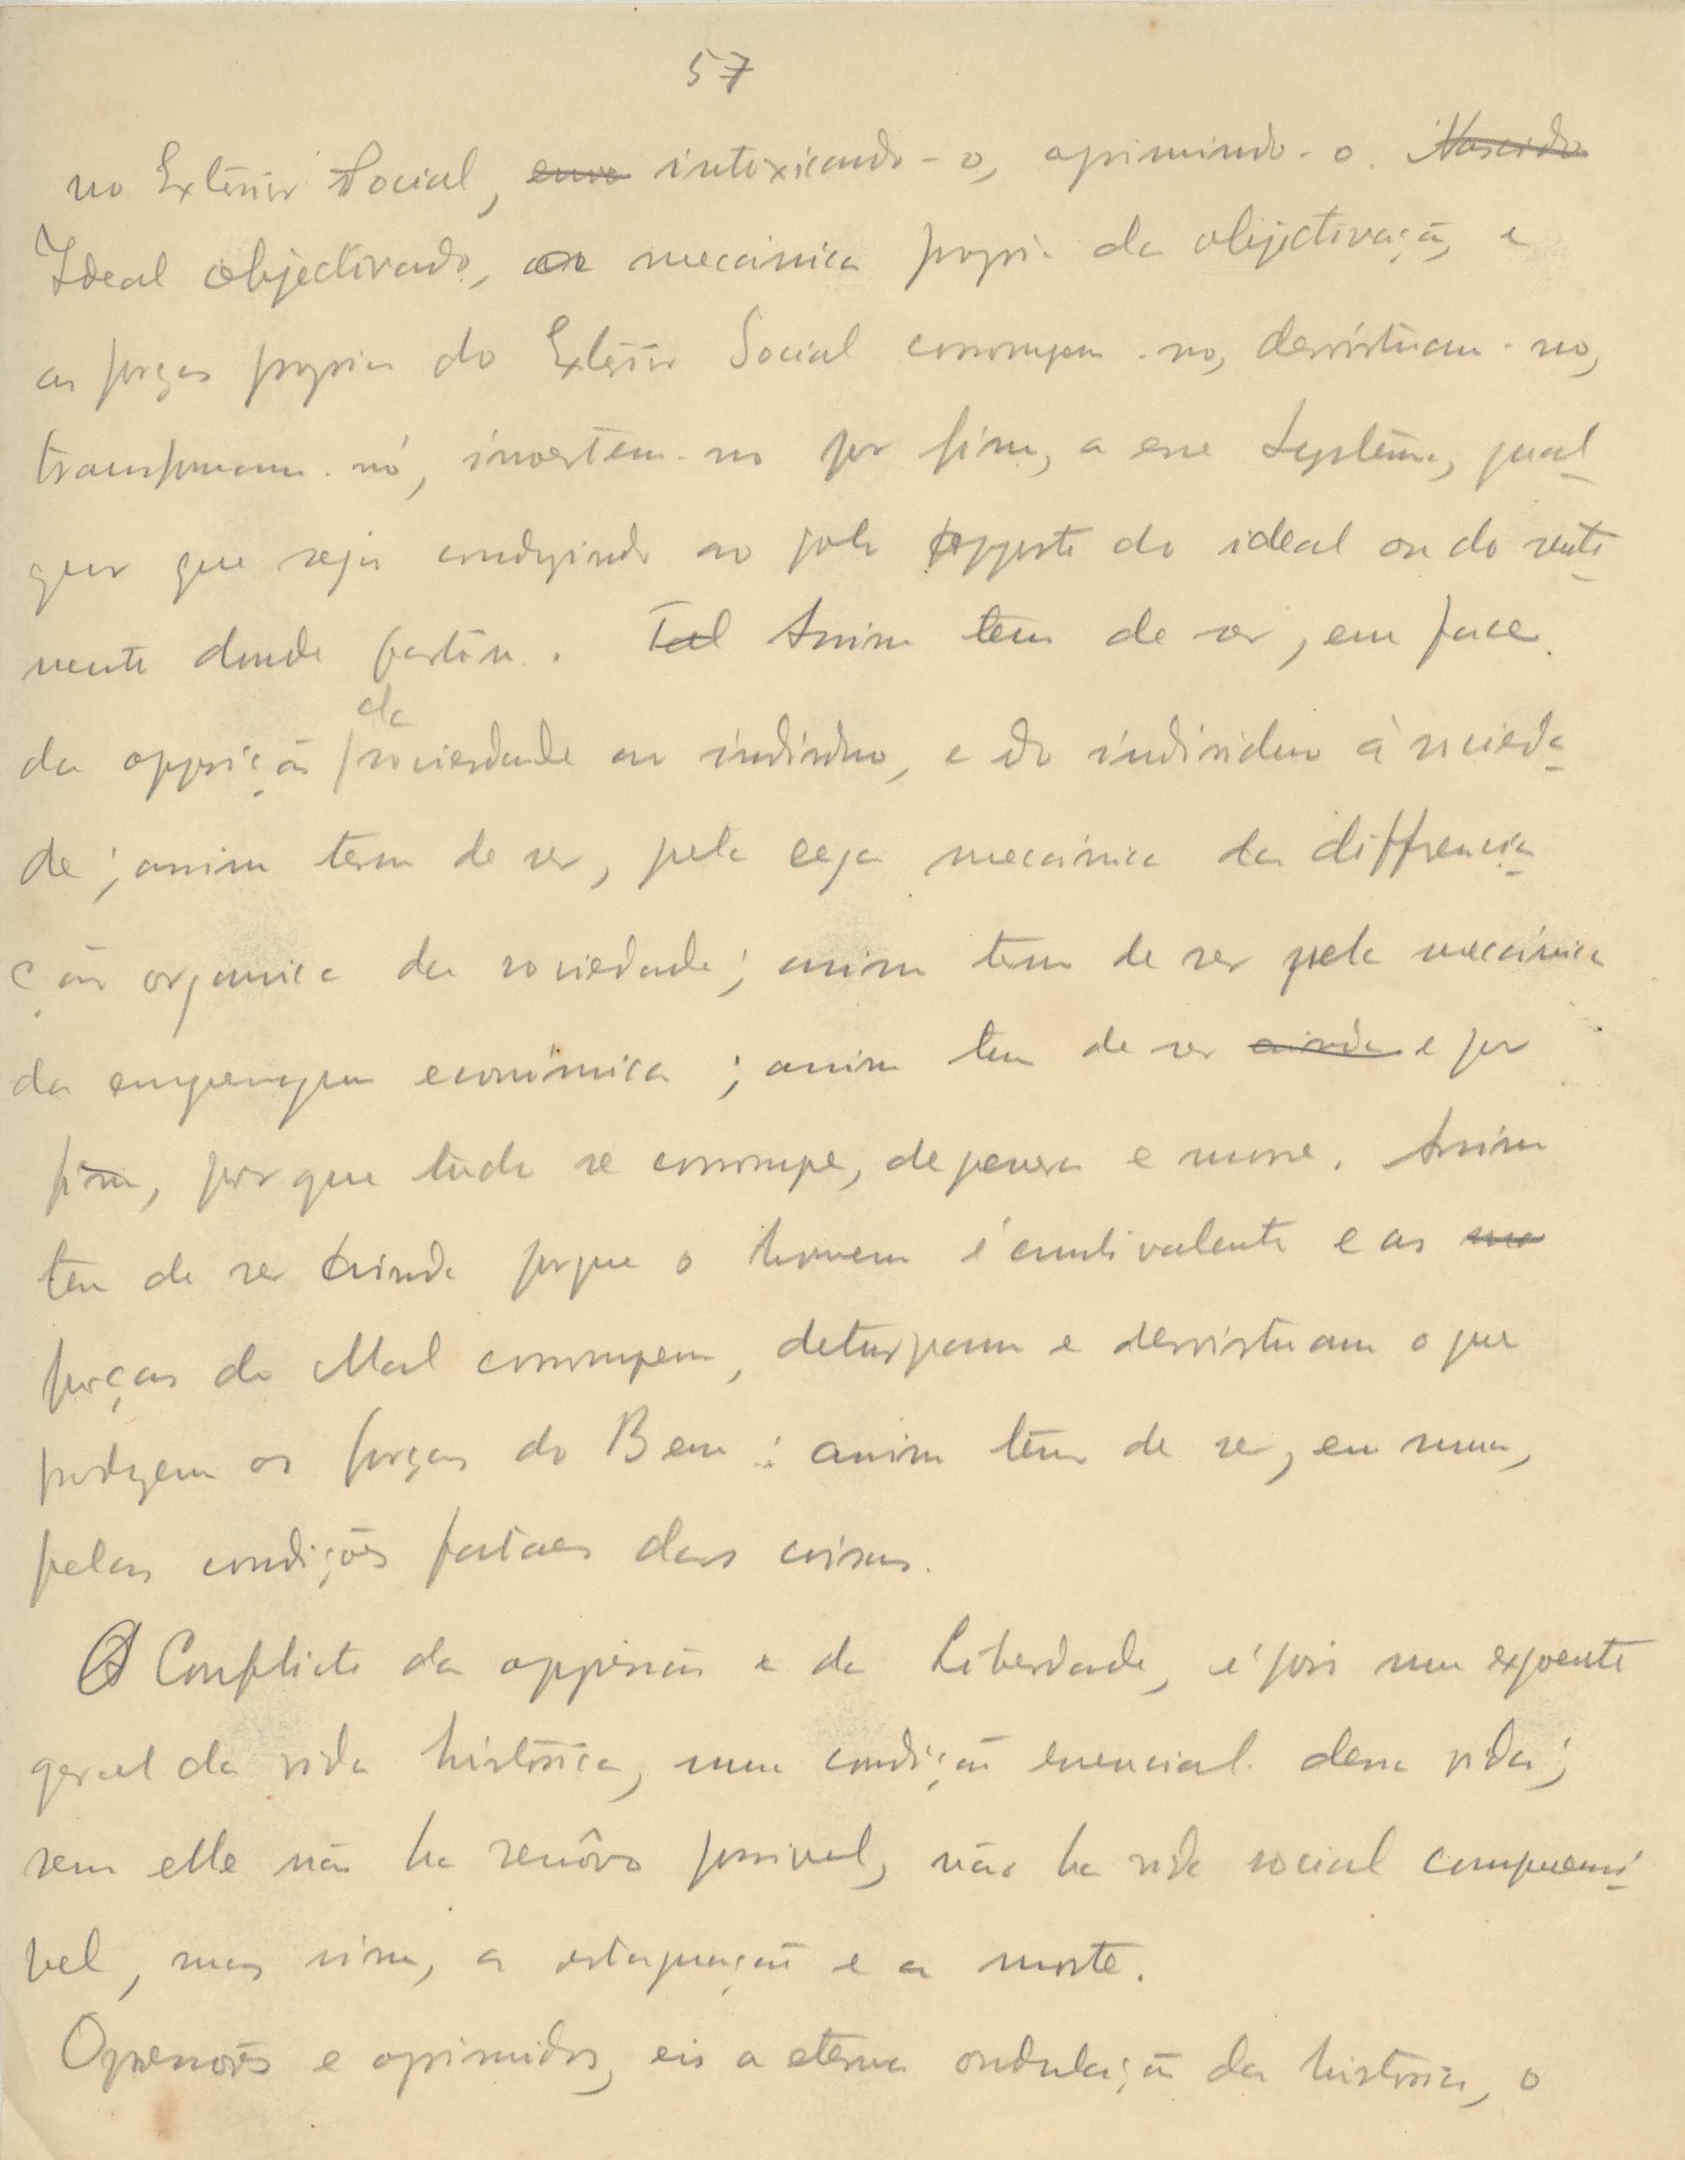 57
no Exterior Social, intoxicando-o, oprimindo-o. Nascido
Ideal objectivado, a mecânica propria da objectivação, e
as forças proprias do Exterior Social corrompem-no, desvirtuam-no,
transformam-no, invertem-no por fim, a esse systema, qual
quer que seja conduzindo ao polo opposto do ideal ou do senti
mento donde partira. Tal Assim tem de ser, em face
da opposição da sociedade ao individuo, e do individuo à socieda
de; assim tem de ser, pela cega mecânica da differencia
ção organica da sociedade; assim tem de ser pela mecânica
da engrenagem económica; assim tem de ser ainda e por
fim, porque tudo se corrompe, degenera e morre. Assim
tem de ser ainda porque o homem é ambivalente e as
forças do Mal corrompem, deturpam e desvirtuam o que
produzem as forças do Bem: assim tem de ser, em suma,
pelas condições fataes das coisas.
O Conflicto da oppressão e da Liberdade, é pois um expoente
geral da vida histórica, uma condição essencial dessa vida;
sem elle não ha renôvo possivel, não ha vida social compreensi
vel, mas sim, a estagnação e a morte.
Opressores e oprimidos, eis a eterna ondulação da história, o